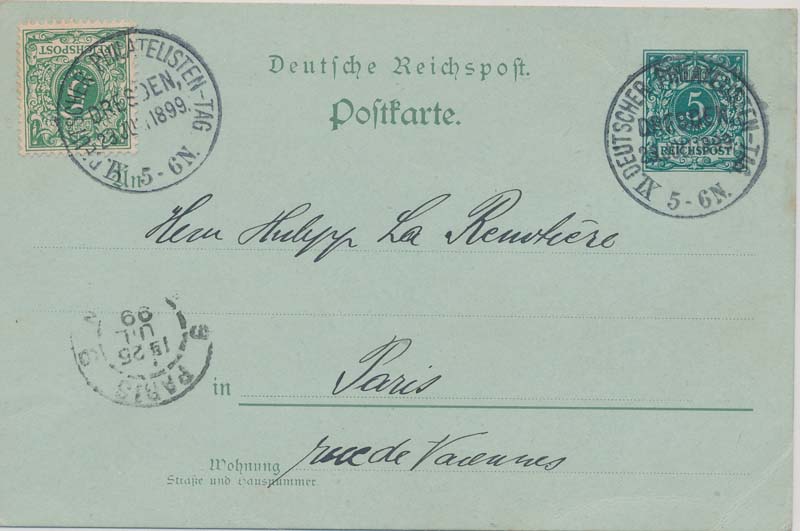 Deutsche Reichspost.
Postkarte.
REICHSPOST
5
REICHSPOST
XI. DEUTSCHER PHILATELISTEN-TAG
DRESDEN,
1899.
5-6N.
XI. DEUTSCHER PHILATELISTEN-TAG
DRESDEN,
5-6N.
An
Herrn Philipp La Renotière
in Paris
Wohnung rue de Varennes
Straße und Hausnummer
PARIS
25
99